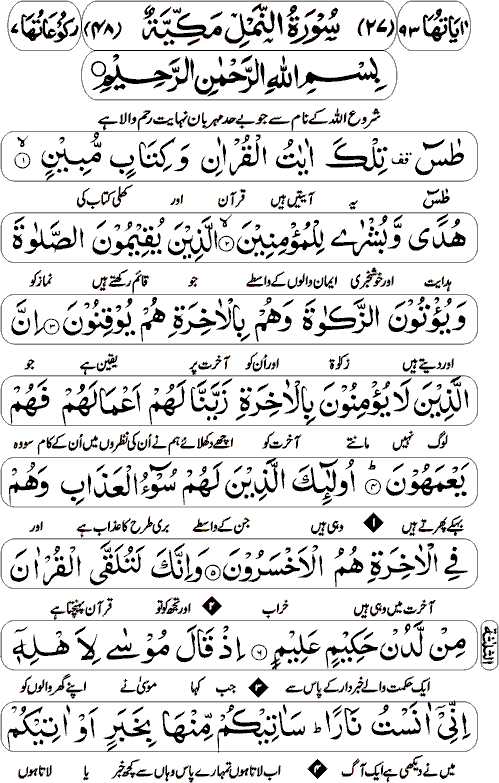 اٰيَاتُهَا ٩٣ (٢٧) سُوْرَةُ النَّمْلِ مَكِّيَّةٌ (٤٨) رُكُوْعَاتُهَا ٧
بِسْمِ اللّٰهِ الرَّحْمٰنِ الرَّحِيْمِ
شروع اللہ کے نام سے جو بے حد مہربان نہایت رحم والا ہے
طٰسٓ تف تِلْكَ اٰيٰتُ الْقُرْاٰنِ وَكِتَابٍ مُّبِيْنٍ ۙ١
طٰسٓ یہ آیتیں ہیں قرآن اور کھلی کتاب کی
هُدًى وَّبُشْرٰى لِلْمُؤْمِنِيْنَ ۙ٢ الَّذِيْنَ يُقِيْمُوْنَ الصَّلٰوةَ
ہدایت اور خوشخبری ایمان والوں کے واسطے جو قائم رکھتے ہیں نماز کو
وَيُؤْتُوْنَ الزَّكٰوةَ وَهُمْ بِالْاٰخِرَةِ هُمْ يُوْقِنُوْنَ ٣ اِنَّ
اور دیتے ہیں زکوٰۃ اور اُن کو آخرت پر یقین ہے جو
الَّذِيْنَ لَا يُؤْمِنُوْنَ بِالْاٰخِرَةِ زَيَّنَّا لَهُمْ اَعْمَالَهُمْ فَهُمْ
لوگ نہیں مانتے آخرت کو اچھے دکھلائے ہم نے اُن کی نظروں میں اُن کے کام سو وہ
يَعْمَهُوْنَ ؕ٤ اُولٰٓئِكَ الَّذِيْنَ لَهُمْ سُوْٓءُ الْعَذَابِ وَهُمْ
بہکے پھرتے ہیں ١ وہی ہیں جن کے واسطے بری طرح کا عذاب ہے اور
فِي الْاٰخِرَةِ هُمُ الْاَخْسَرُوْنَ ٥ وَاِنَّكَ لَتُلَقَّى الْقُرْاٰنَ
آخرت میں وہی ہیں خراب ٢ اور تجھ کو تو قرآن پہنچتا ہے
مِنْ لَّدُنْ حَكِيْمٍ عَلِيْمٍ ٦ اِذْ قَالَ مُوْسٰى لِاَهْلِهٖٓ
ایک حکمت والے خبردار کے پاس سے ٣ جب کہا موسیٰ نے اپنے گھر والوں کو
اِنِّيْٓ اٰنَسْتُ نَارًا ؕ سَاٰتِيْكُمْ مِّنْهَا بِخَبَرٍ اَوْ اٰتِيْكُمْ
میں نے دیکھی ہے ایک آگ ٤ اب لاتا ہوں تمہارے پاس وہاں سے کچھ خبر یا لاتا ہوں